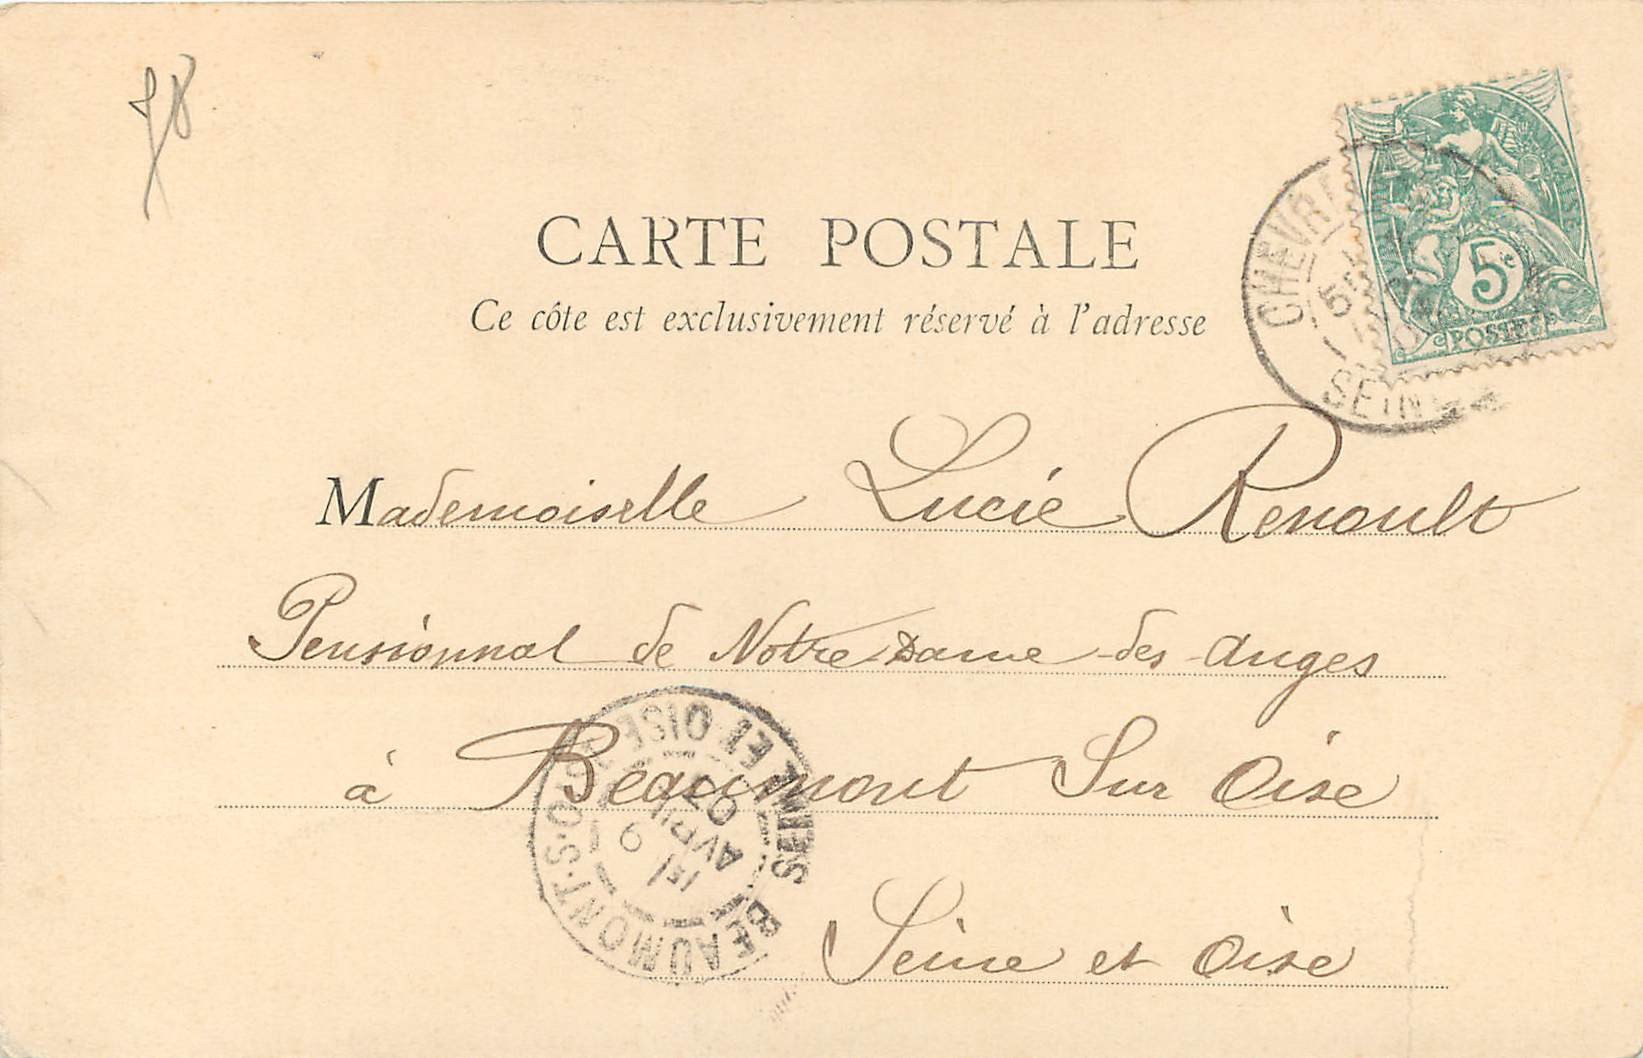 78
CARTE POSTALE
Ce côte est exclusivement réservé à l'adresse
CHEVRE
SEINE
5c
POSTES
Mademoiselle Lucie Renoult
Pensionnat de Notre Dame des Anges
à Beaumont Sur Oise
Seine et Oise
BEAUMONT-S-OISE
SEINE ET OISE
9
AVRIL